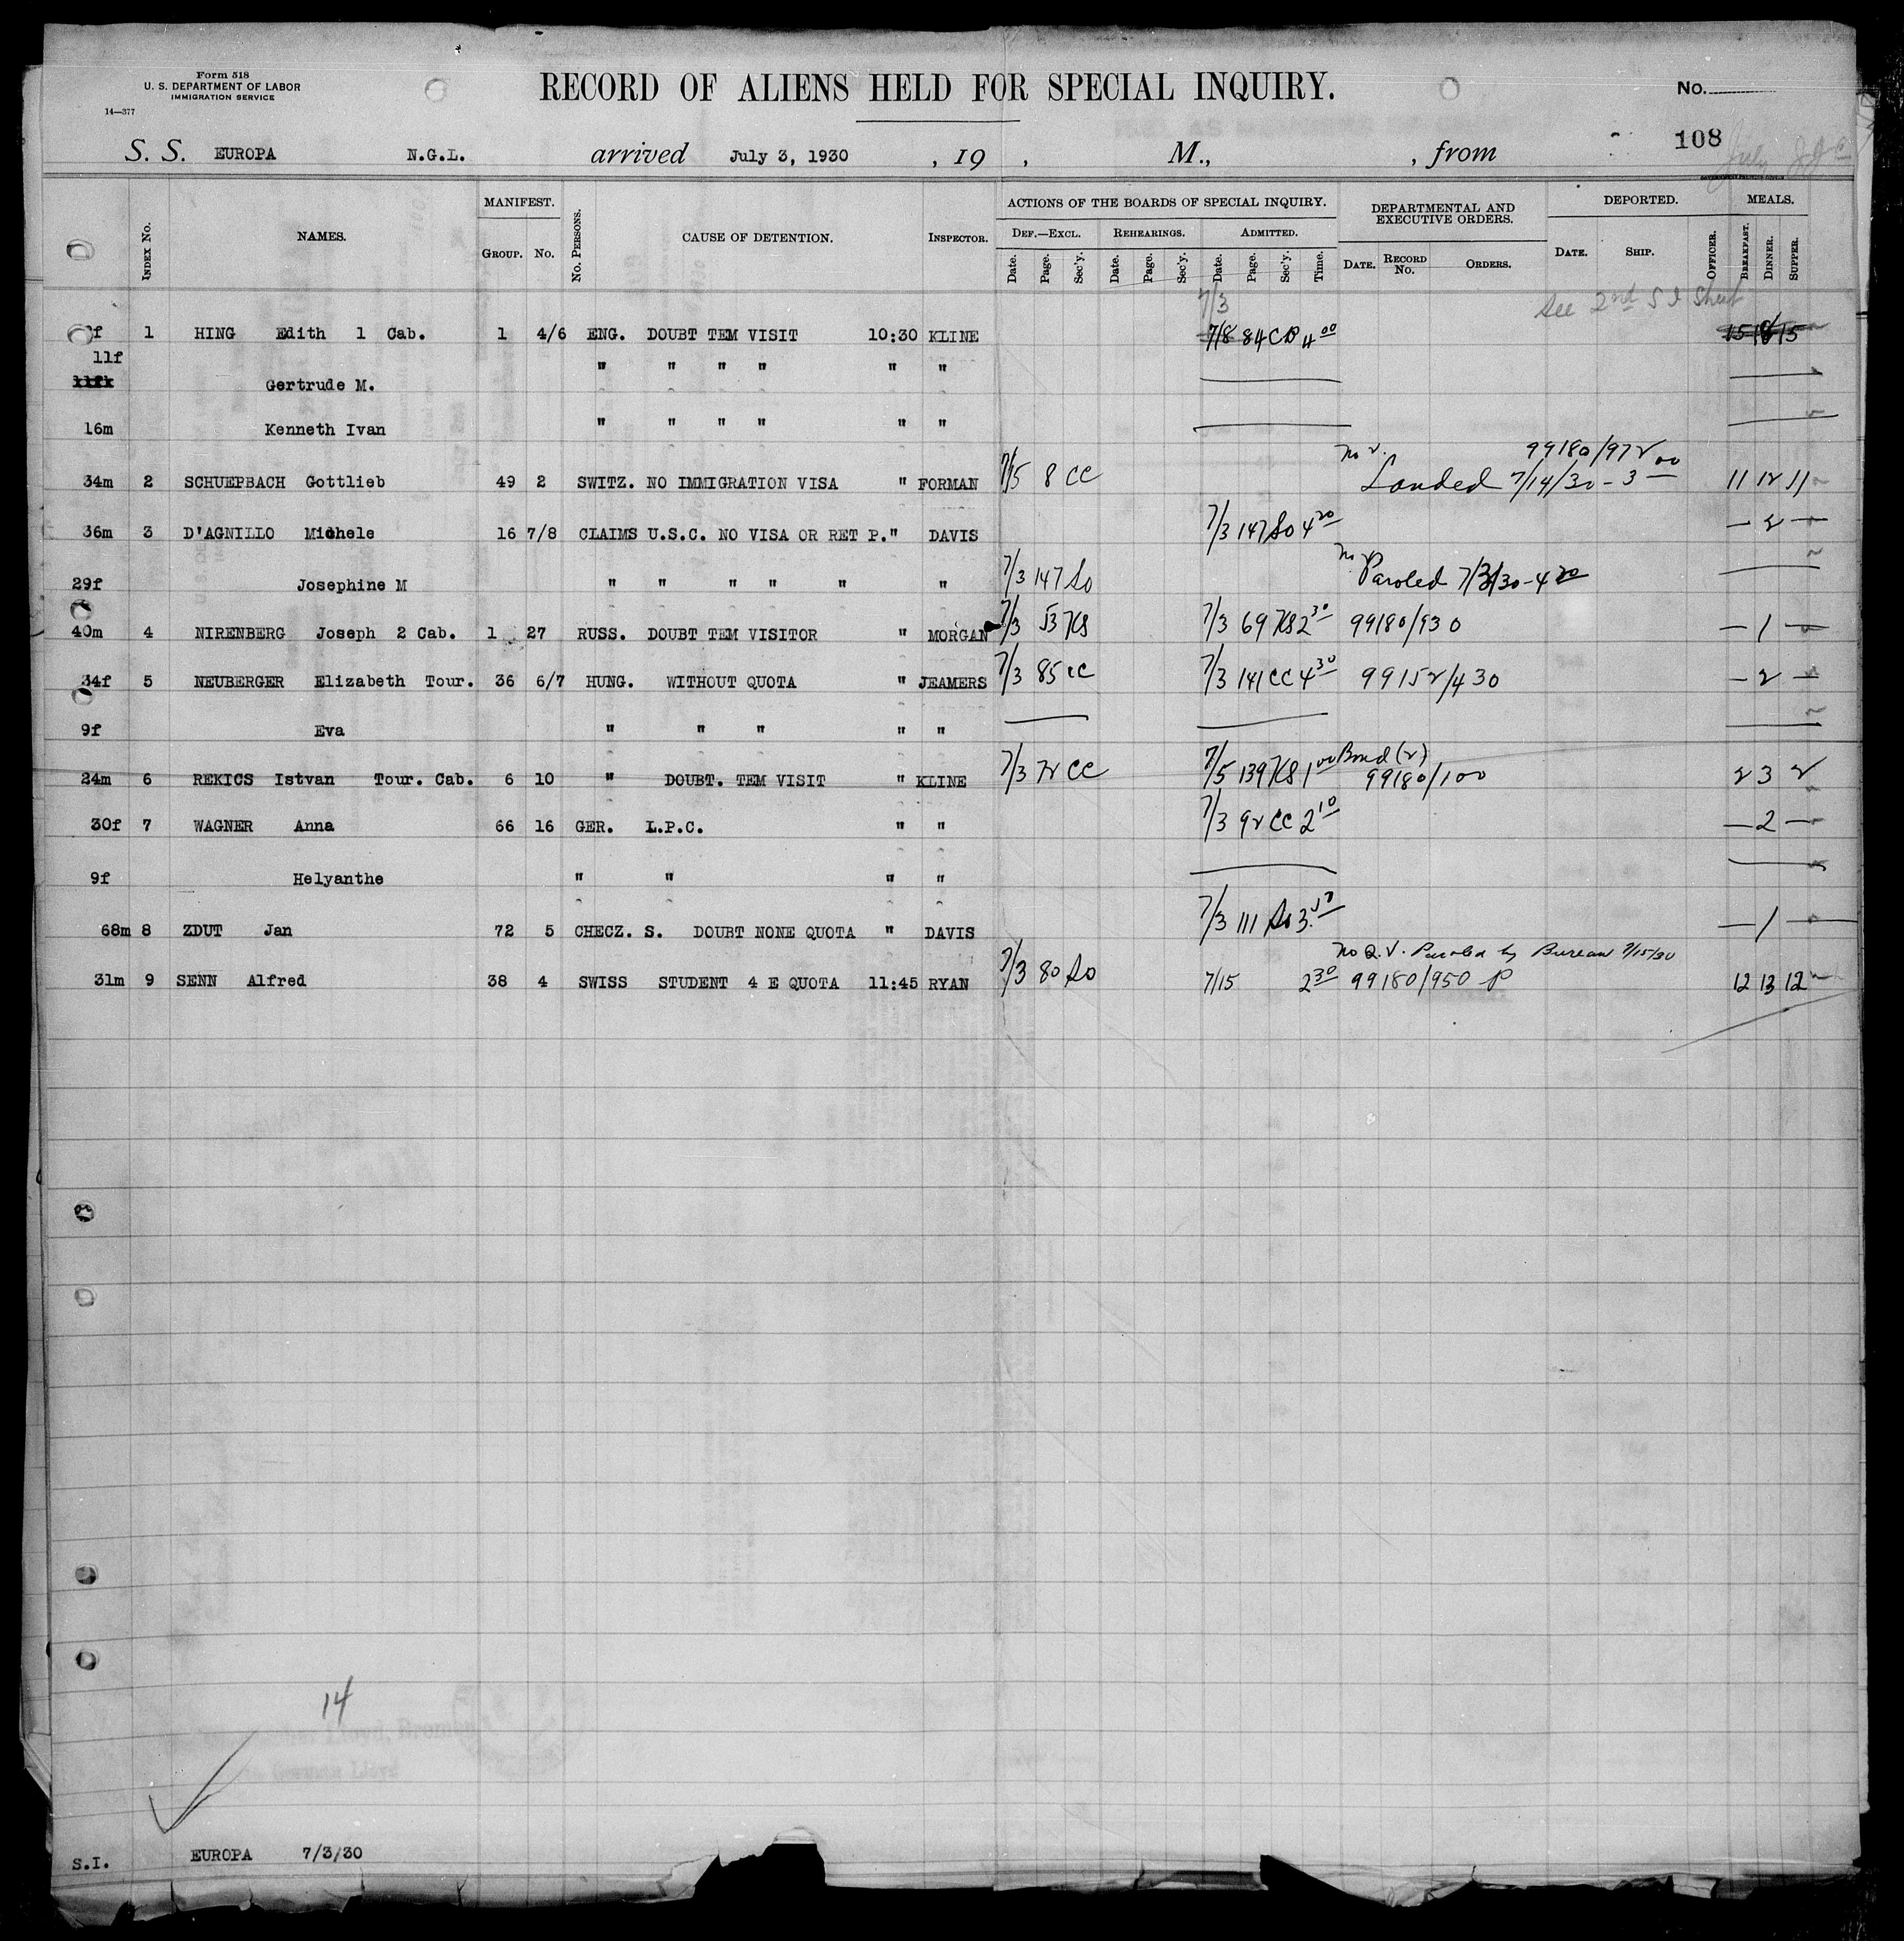 Form 518
U. S. DEPARTMENT OF LABOR
IMMIGRATION SERVICE
14—377
RECORD OF ALIENS HELD FOR SPECIAL INQUIRY.
No.
108
S. S. EUROPA N.G.L. arrived July 3, 1930 , 19 , M., , from
INDEX No. NAMES. MANIFEST. GROUP. No. No. PERSONS. CAUSE OF DETENTION. INSPECTOR. ACTIONS OF THE BOARDS OF SPECIAL INQUIRY. DEF.—EXCL. Date. Page. Sec'y. REHEARINGS. Date. Page. Sec'y. ADMITTED. Date. Page. Sec'y. Time. DEPARTMENTAL AND EXECUTIVE ORDERS. DATE. RECORD No. ORDERS. DEPORTED. DATE. SHIP. OFFICER. MEALS. BREAKFAST. DINNER. SUPPER.
7/3 See 2nd S I Sheet
f 1 HING Edith 1 Cab. 1 4/6 ENG. DOUBT TEM VISIT 10:30 KLINE 7/8 84 CD 4 00
11f
Gertrude M. " " " " " "
16m Kenneth Ivan " " " " " "
No V. 99180/972
34m 2 SCHUEPBACH Gottlieb 49 2 SWITZ. NO IMMIGRATION VISA " FORMAN 7/5 8 CC Landed 7/14/30 - 3 00 11 12 11
36m 3 D'AGNILLO Michele 16 7/8 CLAIMS U.S.C. NO VISA OR RET P." DAVIS 7/3 147 So 4 20 — 2 —
29f Josephine M " " " " " " 7/3 147 So Paroled 7/3/30 - 4 20
40m 4 NIRENBERG Joseph 2 Cab. 1 27 RUSS. DOUBT TEM VISITOR " MORGAN 7/3 53 KS 7/3 69 KS 2 30 99180/930 — 1 —
34f 5 NEUBERGER Elizabeth Tour. 36 6/7 HUNG. WITHOUT QUOTA " JEAMERS 7/3 85 CC 7/3 141 CC 4 30 99152/430 — 2 —
9f Eva " " " " "
24m 6 REKICS Istvan Tour. Cab. 6 10 " DOUBT. TEM VISIT " KLINE 7/3 72 CC 7/5 139 KS 1 00 Bond (2) 99180/100 2 3 2
30f 7 WAGNER Anna 66 16 GER. L.P.C. " " 7/3 92 CC 2 10 — 2 —
9f Helyanthe " " " "
68m 8 ZDUT Jan 72 5 CHECZ. S. DOUBT NONE QUOTA " DAVIS 7/3 111 So 3 — 1 —
No Q.V. Paroled by Bureau 7/15/30
31m 9 SENN Alfred 38 4 SWISS STUDENT 4 E QUOTA 11:45 RYAN 7/3 80 So 7/15 2 30 99180/950 P 12 13 12
14
S.I. EUROPA 7/3/30